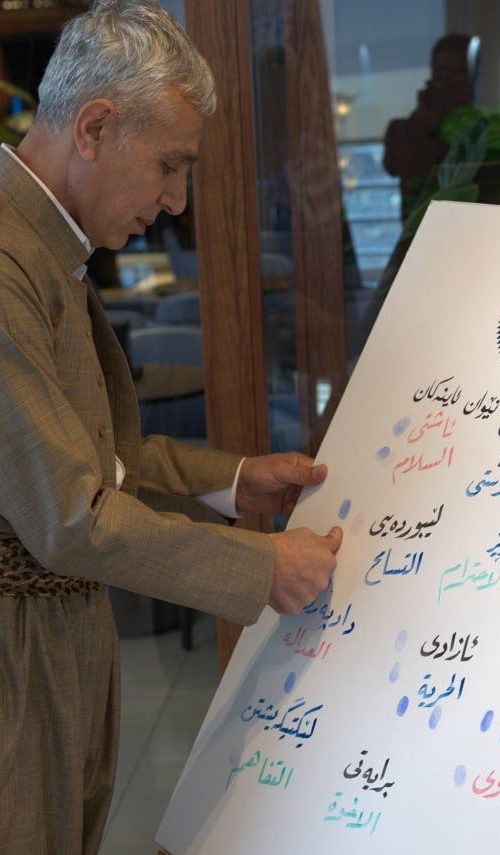 نێوان ئاینەکان
ئاشتی
السلام
لێبوردەیی
التسامح
الاحترام
دادپەر
العدالة
ئازادی
الحرية
لێکتێگەیشتن
التفاهم
برایەتی
الاخوة